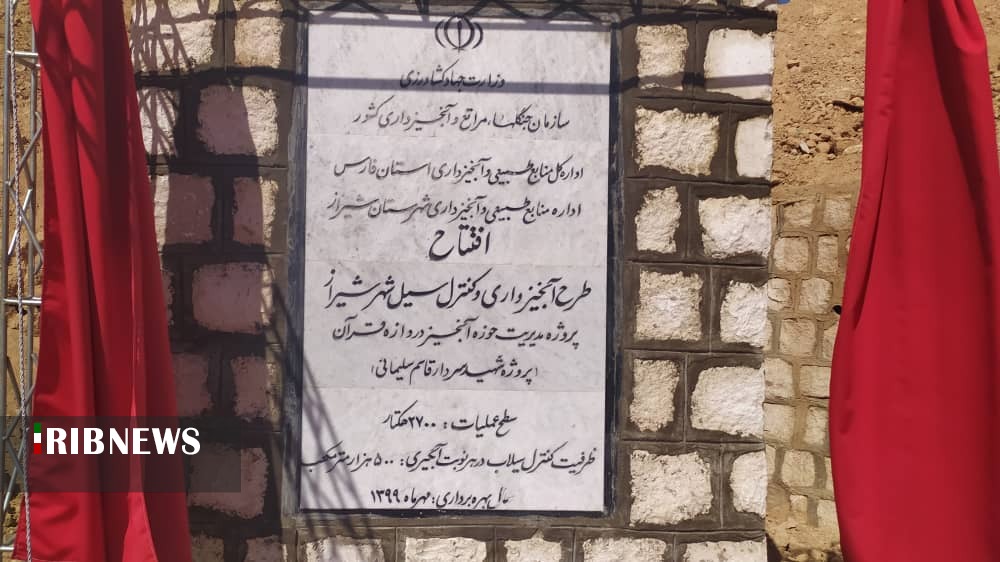 وزارت جهاد کشاورزی
سازمان جنگلها، مراتع و آبخیزداری کشور
اداره کل منابع طبیعی و آبخیزداری استان فارس
اداره منابع طبیعی و آبخیزداری شهرستان شیراز
افتتاح
طرح آبخیزداری و کنترل سیل شهر شیراز
پروژه مدیریت حوزه آبخیز دروازه قرآن
(پروژه شهید سردار قاسم سلیمانی)
سطح عملیات: ۲۷۰۰ هکتار
ظرفیت کنترل سیلاب در هر نوبت آبگیری: ۵۰۰ هزار مترمکعب
سال بهره برداری: مهرماه ۱۳۹۹
IRIBNEWS